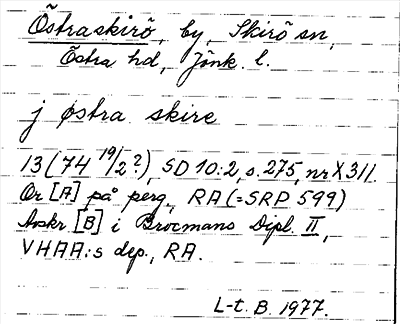 Östraskirö, by, Skirö sn,
Östra hd, Jönk. l.
j østra skire
13(74 19/2?), SD 10:2, s. 275, nr X311.
Or [A] på perg., RA (=SRP 599)
Avskr. [B] i Brocmans Dipl. II,
VHAA:s dep., RA.
L-t. B. 1977.